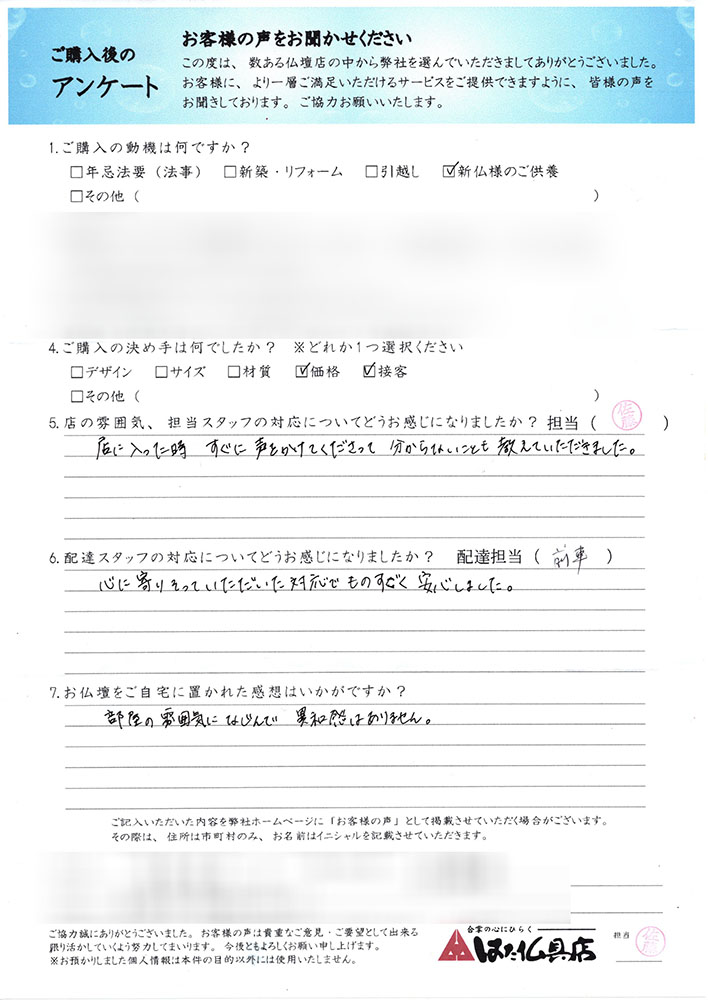 ご購入後の
アンケート
お客様の声をお聞かせください
この度は、数ある仏壇店の中から弊社を選んでいただきましてありがとうございました。
お客様に、より一層ご満足いただけるサービスをご提供できますように、皆様の声を
お聞きしております。ご協力お願いいたします。
1.ご購入の動機は何ですか?
□年忌法要(法事) □新築・リフォーム □引越し ☑新仏様のご供養
□その他( )
4.ご購入の決め手は何でしたか? ※どれか1つ選択ください
□デザイン □サイズ □材質 ☑価格 ☑接客
□その他( )
5.店の雰囲気、担当スタッフの対応についてどうお感じになりましたか? 担当(佐藤)
店に入った時 すぐに声をかけてくださって 分からないことも教えていただきました。
6.配達スタッフの対応についてどうお感じになりましたか? 配達担当(前車)
心に寄りそっていただいた対応でものすごく安心しました。
7.お仏壇をご自宅に置かれた感想はいかがですか?
部屋の雰囲気になじんで 異和感はありません。
ご記入いただいた内容を弊社ホームページに「お客様の声」として掲載させていただく場合がございます。
その際は、住所は市町村のみ、お名前はイニシャルを記載させていただきます。
ご協力誠にありがとうございました。お客様の声は貴重なご意見・ご要望として出来る
限り活かしていくよう努力してまいります。今後ともよろしくお願い申し上げます。
※お預かりしました個人情報は本件の目的以外には使用いたしません。
合掌の心にひらく
はた仏具店
担当 佐藤